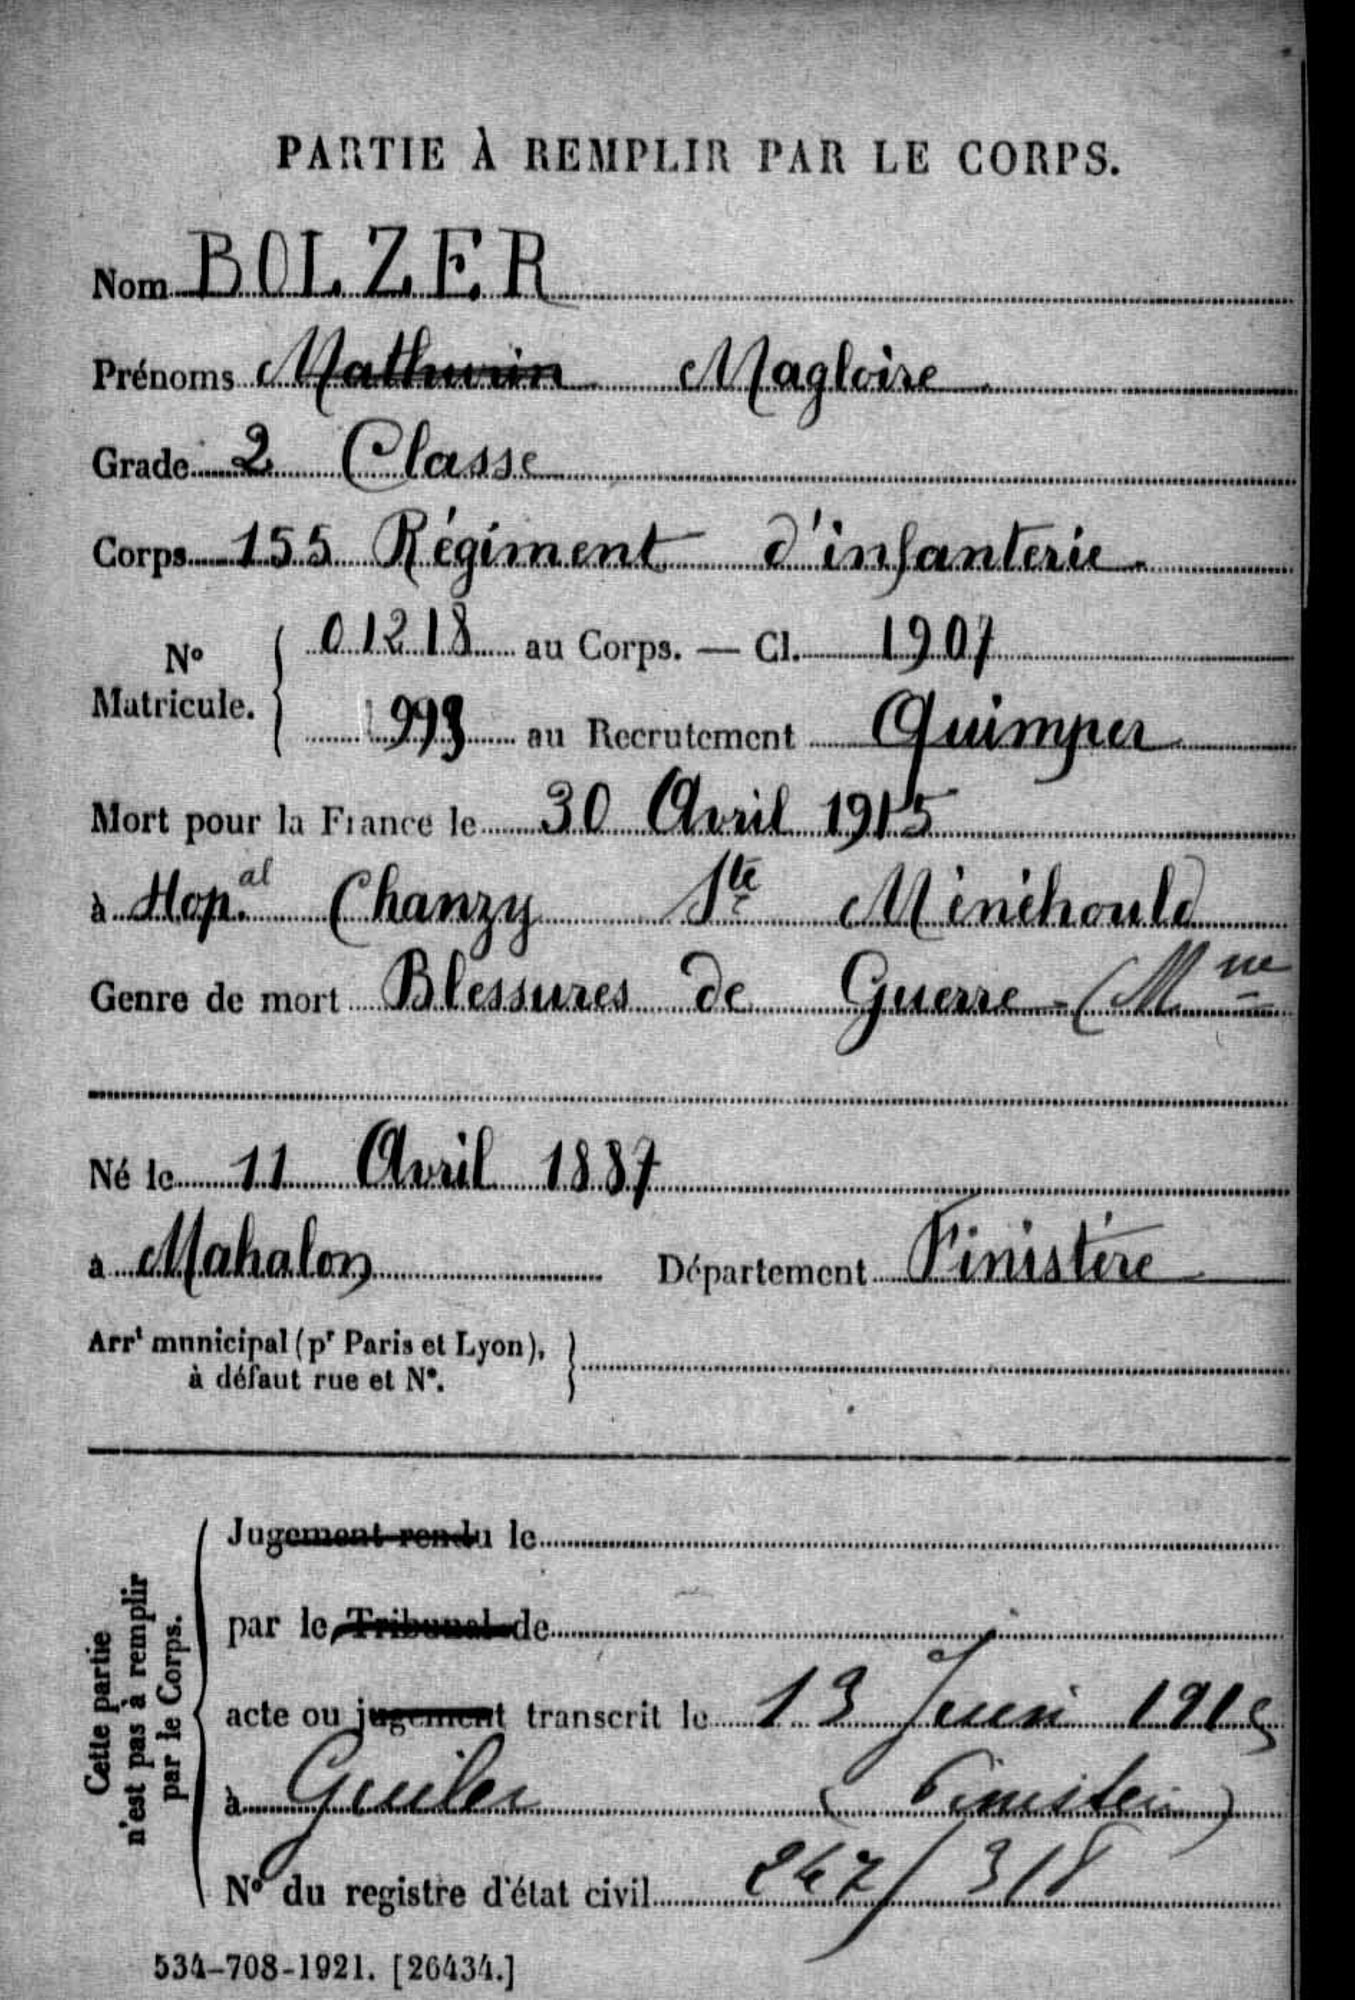 PARTIE À REMPLIR PAR LE CORPS.
Nom BOLZER
Prénoms Mathurin Magloire
Grade 2 Classe
Corps 155 Régiment d'infanterie
N° Matricule. 01218 au Corps. — Cl. 1907
993 au Recrutement Quimper
Mort pour la France le 30 Avril 1915
à Hop.al Chanzy Ste Ménéhould
Genre de mort Blessures de Guerre (Mne
Né le 11 Avril 1887
à Mahalon Département Finistère
Arrt municipal (pr Paris et Lyon),
à défaut rue et N°.
Cette partie
n'est pas à remplir
par le Corps.
Jugement rendu le
par le Tribunal de
acte ou jugement transcrit le 13 Juin 1915
à Guiler (Finistère)
N° du registre d'état civil 247/318
534-708-1921. [26434.]